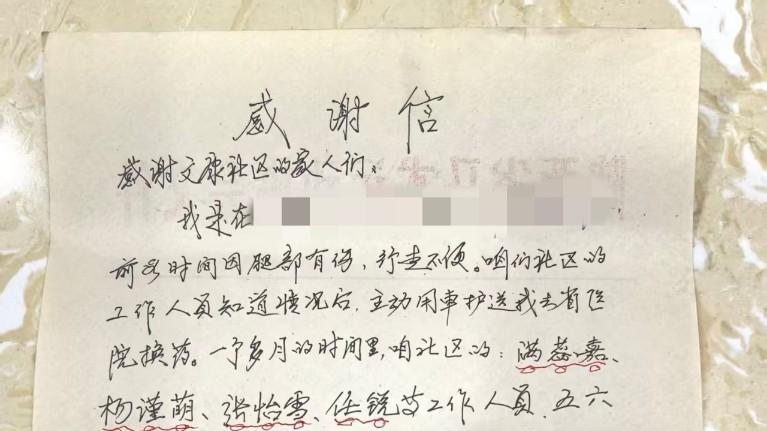 感谢信
感谢文康社区的家人们。
我是在
前些时间因腿部有伤，行走不便。咱们社区的
工作人员知道情况后，主动用车护送我去省医
院换药。一个多月的时间里，咱社区的：满蕊嘉、
杨谨萌、张怡雪、任锐等工作人员、五六